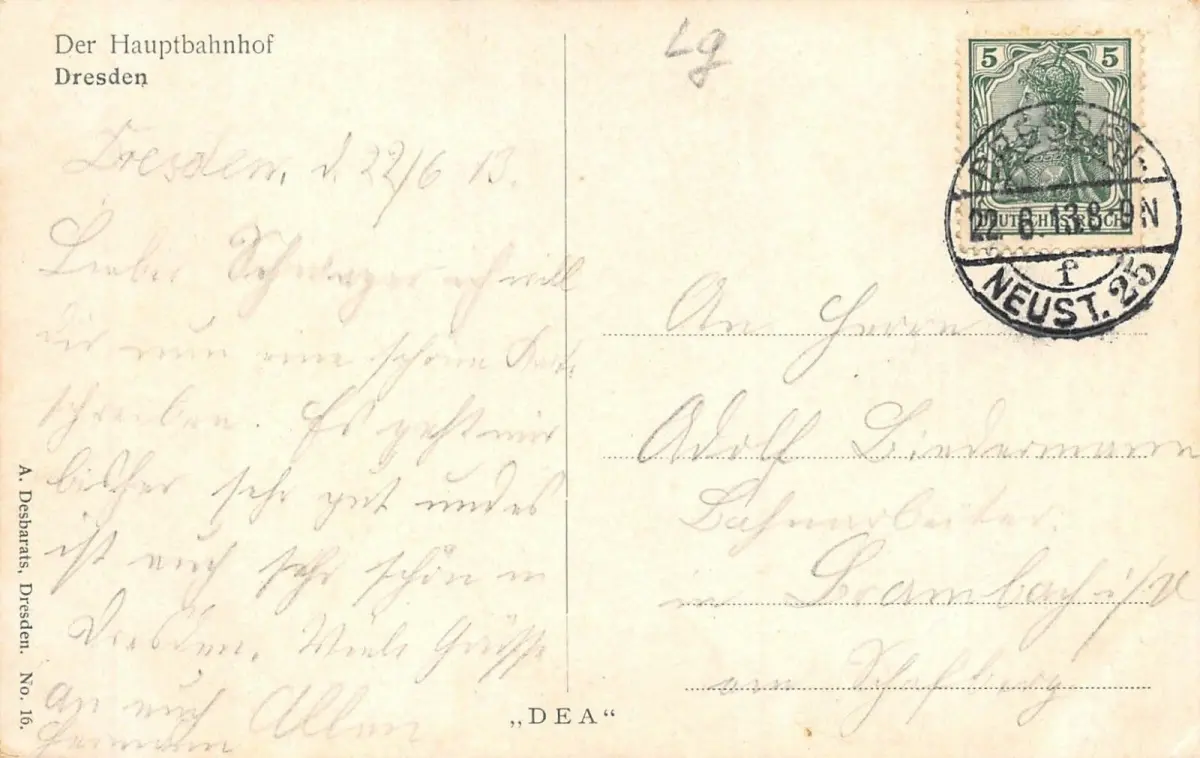 Der Hauptbahnhof
Dresden
Dresden, d. 22/6 13.
Lieber Schwager ich will
dir nun eine schöne Karte
schreiben. Es geht mir
bisher sehr gut und es
ist auch sehr schön in
Dresden. Viele Grüsse
an euch Allen
Hermann
A. Desbarats, Dresden. No. 16.
„DEA“
Lg
5 5
DEUTSCHES REICH
DRESDEN.
22. 6. 13. 8-9N
f
NEUST. 25
An Herrn
Adolf Biedermann
Bahnarbeiter
in Brambach i/V
am Schafberg